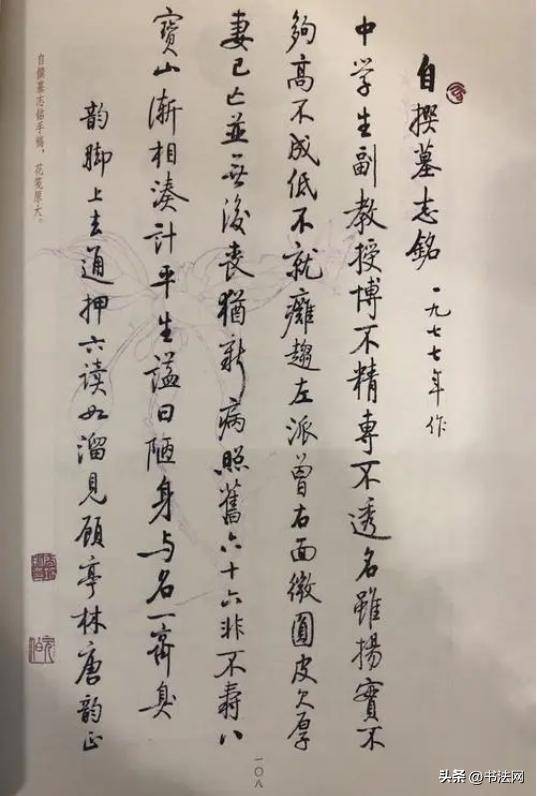 自撰墓志銘 一九七七年作
中学生副教授博不精專不透名雖揚實不
夠高不成低不就癱趨左派曾右面微圓皮欠厚
妻已亡並無後喪猶新病照舊六十六非不壽八
寶山漸相湊計平生謚曰陋身与名一齊臭
韵脚上去通押六读如溜見顧亭林唐韵正
自撰墓志銘手稿，花箋原大。
一〇八
头条 @书法网